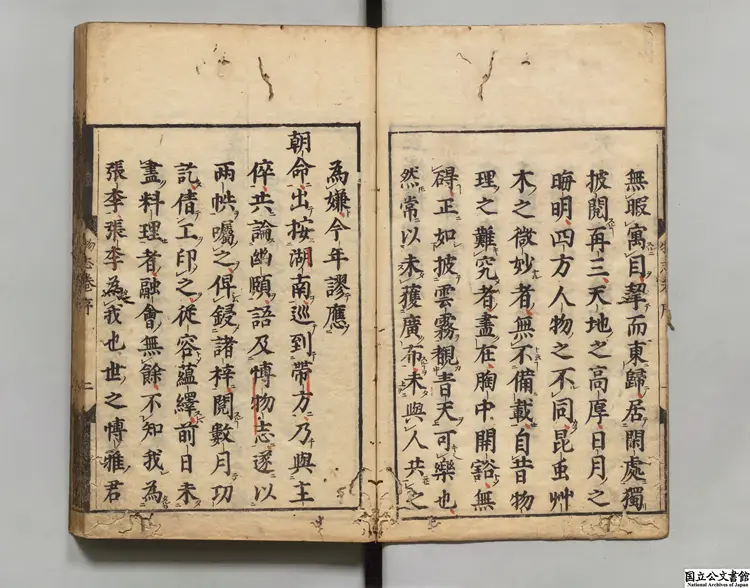 無暇寓目挈而東歸居閑處獨
披閲再三天地之高厚日月之
晦明四方人物之不同昆虫艸
木之微妙者無不備載自昔物
理之難究者盡在胸中開豁無
碍正如披雲霧覩青天可樂也
然常以未獲廣布未與人共之
為嫌今年謬應
朝命出按湖南巡到帶方乃與主
倅共論幽賾語及博物志遂以
兩帙囑之俾鋟諸梓閲數月功
訖倩工印之從容蘊繹前日未
盡料理者融會無餘不知我為
張李張李為我也世之博雅君
物志卷序
二
国立公文書館
National Archives of Japan